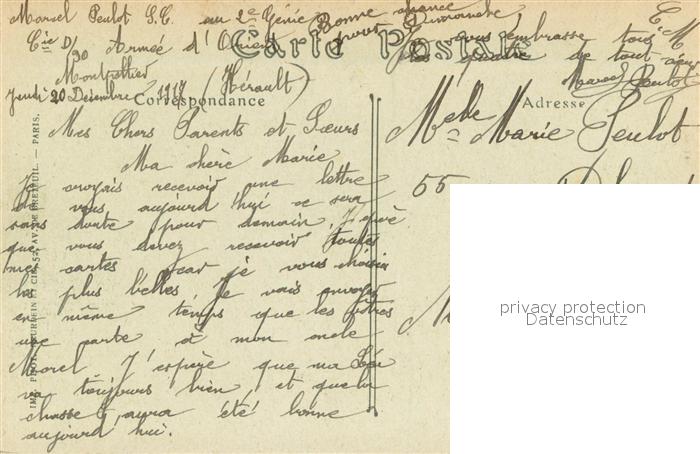 Marcel Peulot S.C. au 2e Génie
Cie D/30 Armée d'Orient
Montpellier (Hérault)
Jeudi 20 Décembre 1917
Bonne chance
pour Dimanche
Je vous embrasse tous
les quatre de tout cœur
Marcel Peulot
Carte Postale
Correspondance
Adresse
Melle Marie Peulot
55
Mes Chers Parents et Sœurs
Ma chère Marie
Je croyais recevoir une lettre
de vous aujourd'hui ce sera
sans doute pour demain, J'espère
que vous devez recevoir toutes
mes cartes car je vous choisis
les plus belles, Je vais envoyer
en même temps que les vôtres
une carte à mon oncle
Morel J'espère que ma Léa
va toujours bien, et que la
chasse aura été bonne
aujourd'hui.
IMP. PHOT. NEURDEIN ET CIE, 52, AV. DE BRETEUIL. — PARIS.
privacy protection
Datenschutz